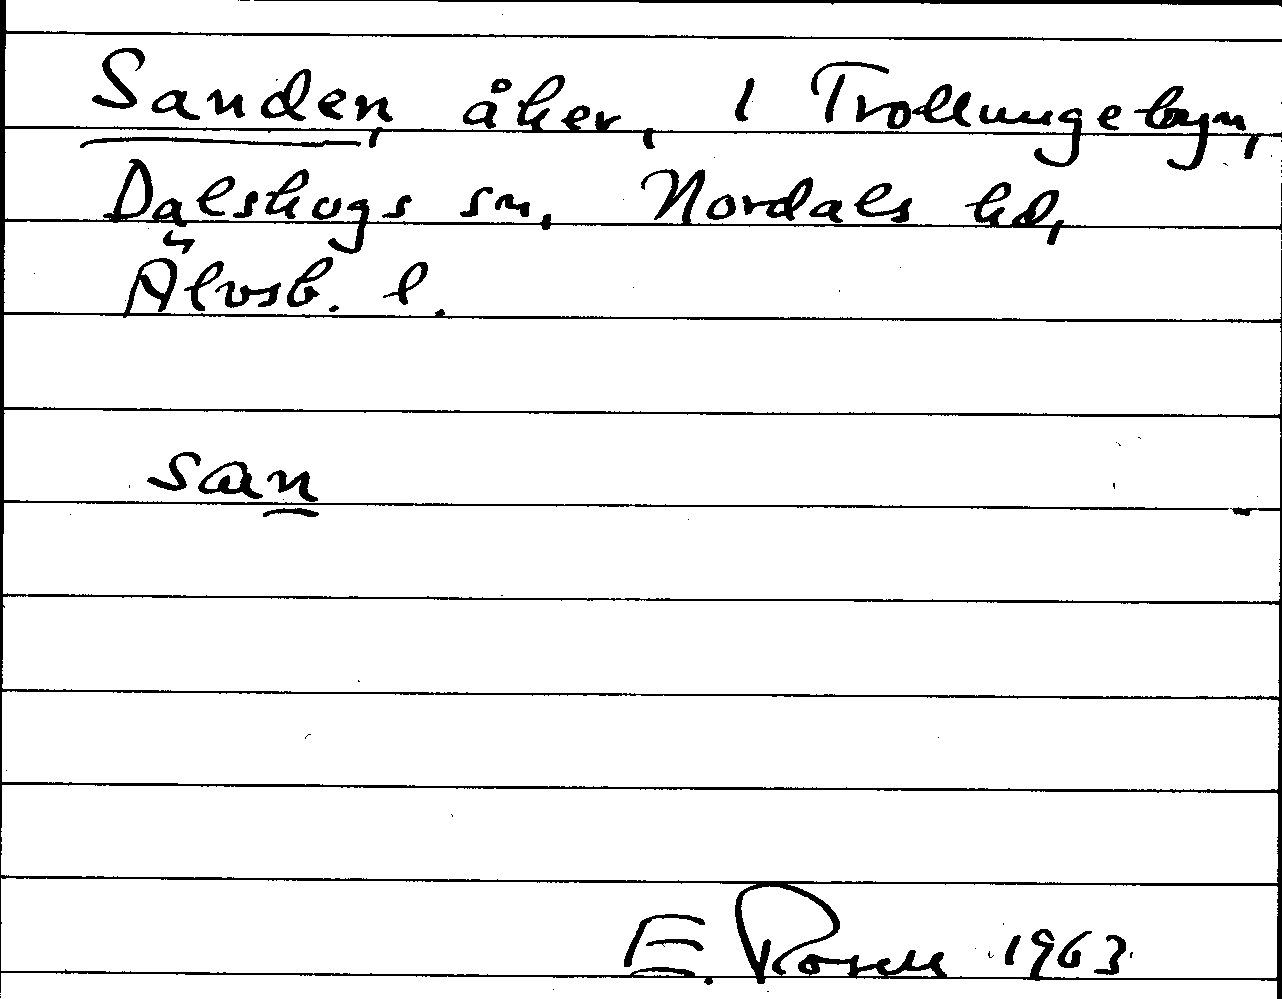 Sanden, åker, i Trollungebyn,
Dalskogs sn, Nordals hd,
Älvsb. l.
san
E. Rosell 1963